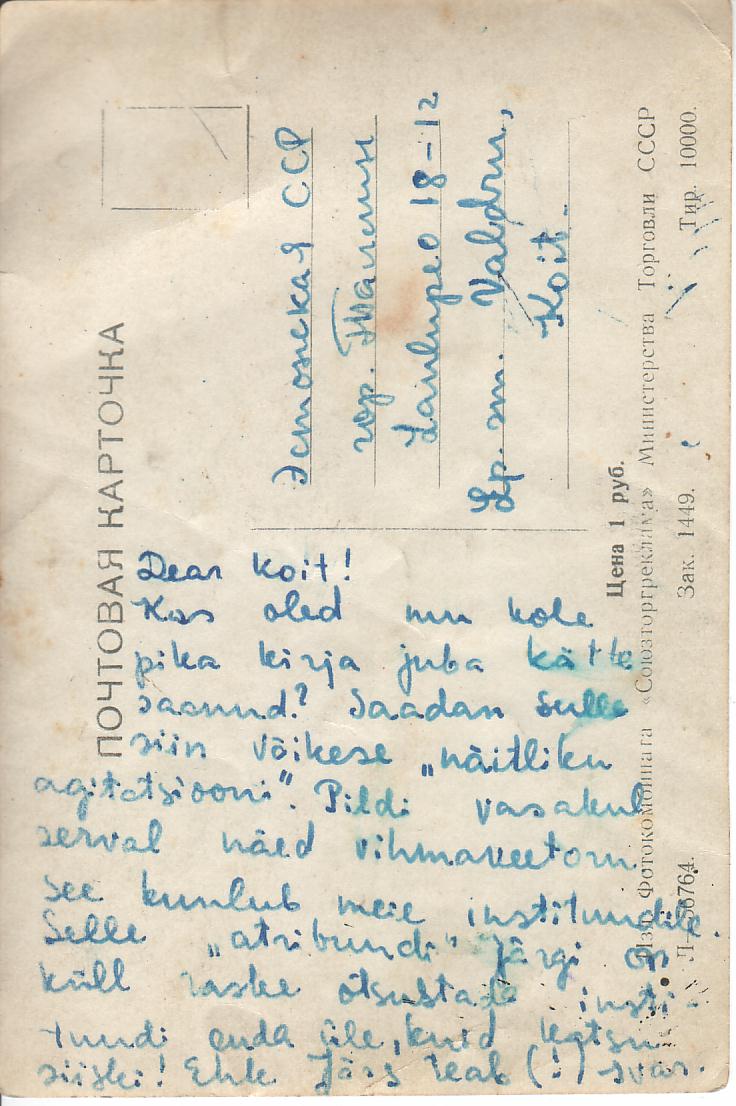 ПОЧТОВАЯ КАРТОЧКА
Эстонская ССР
гор. Таллин
18-12
Gr. m. Valdru,
Koit.
Dear Koit!
Kas oled mu kole
pika kirja juba kätte
saanud? Saadan sulle
siin väikese „näitliku
agitatsiooni". Pildi vasakul
serval näed vihmaveetoru
see kuulub meie instituudile.
Selle „atribuudi" järgi on
küll raske otsustada insti-
tuudi enda üle, kuid katsu
siiski! Ehk Järs teab (!)
Цена 1 руб.
Изд. Фотокомбината «Союзторгреклама» Министерства Торговли СССР
Л-56764. Зак. 1449. Тир. 10000.